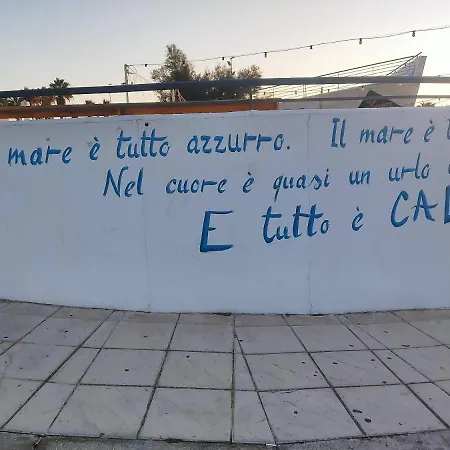 mare è tutto azzurro. Il mare è t
Nel cuore è quasi un urlo
E tutto è CAL